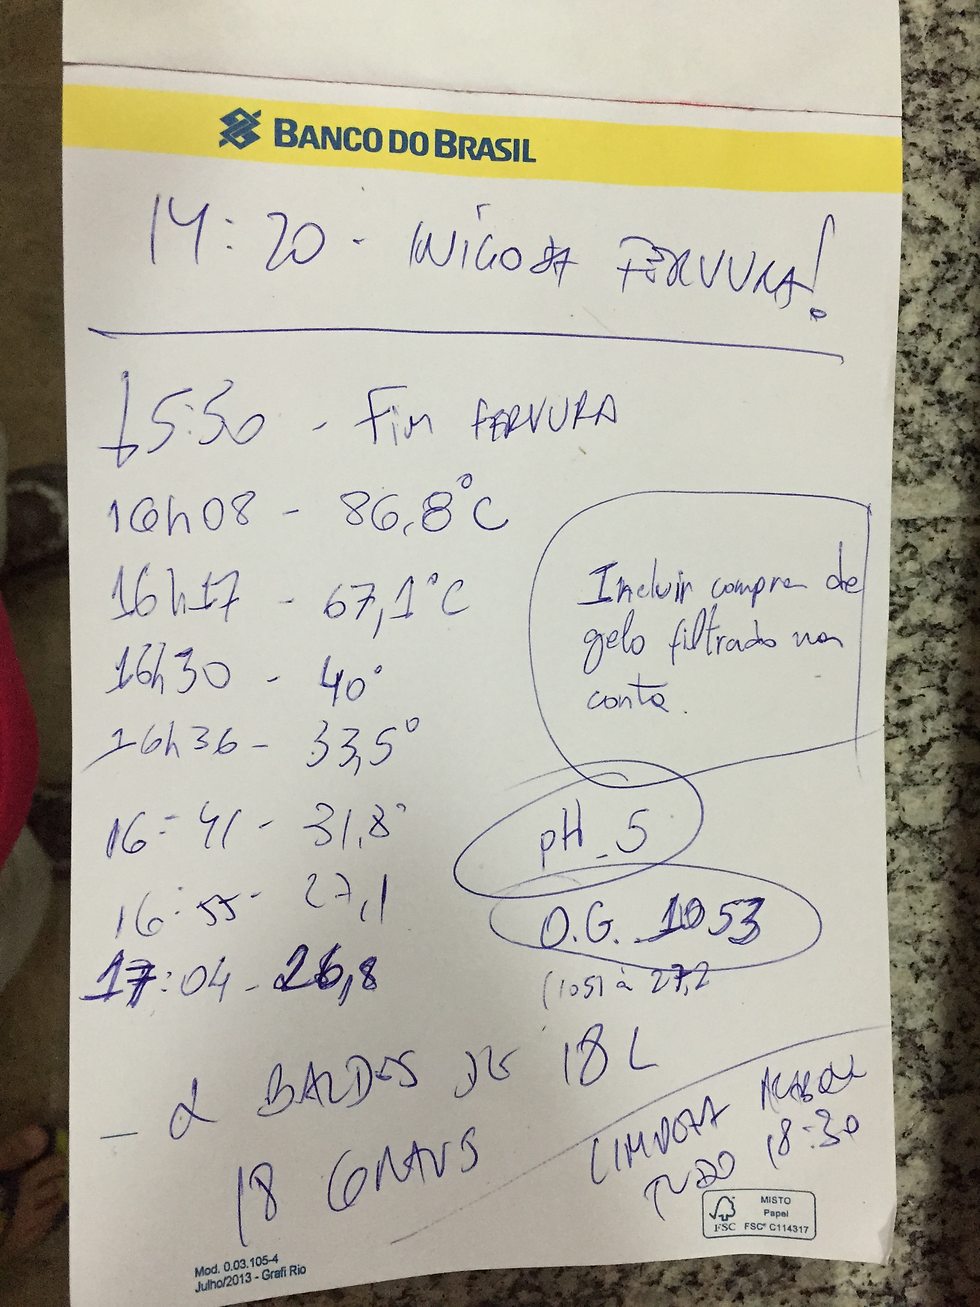 BANCO DO BRASIL
14:20 - INÍCIO DA FERVURA!
15:50 - Fim FERVURA
16h08 - 86,8°C
16h17 - 67,1°C
16h30 - 40°
16h36 - 33,5°
16:41 - 31,8°
16:55 - 27,1
17:04 - 26,8
Incluir compra de
gelo filtrado na
conta.
pH_5
O.G. 1053
(1051 à 27,2
- 2 BALDES DE 18L
18 GRAUS
LIMPEZA ACABOU
TUDO 18:30
MISTO
Papel
FSC
FSC® C114317
Mod. 0.03.105-4
Julho/2013 - Grafi Rio